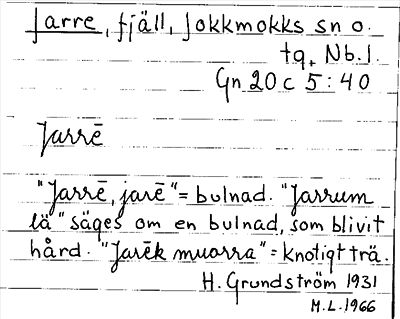 Jarre, fjäll, Jokkmokks sn o.
tg, Nb.l.
Gn 20 c 5:40
Jarrē
"Jarrē, jarē" = bulnad. "Jarrum
lä" säges om en bulnad, som blivit
hård. "Jarēk muorra" = knotigt trä.
H. Grundström 1931
M.L. 1966